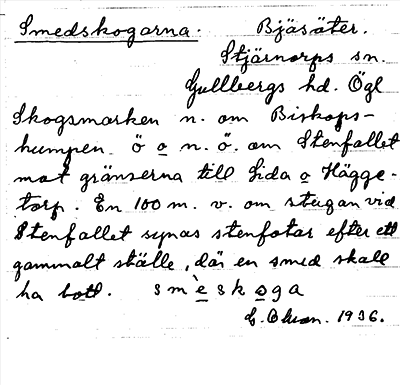 Smedskogarna. Bjäsäter.
Stjärnorps sn.
Gullbergs hd. Ögl
Skogsmarken n. om Biskops-
humpen ö o n. ö. om Stenfallet
mot gränserna till Lida o Hägge-
torp. En 100 m. v. om stugan vid
Stenfallet synas stenfotar efter ett
gammalt ställe, där en smed skall
ha bott. smèskoga
1936.